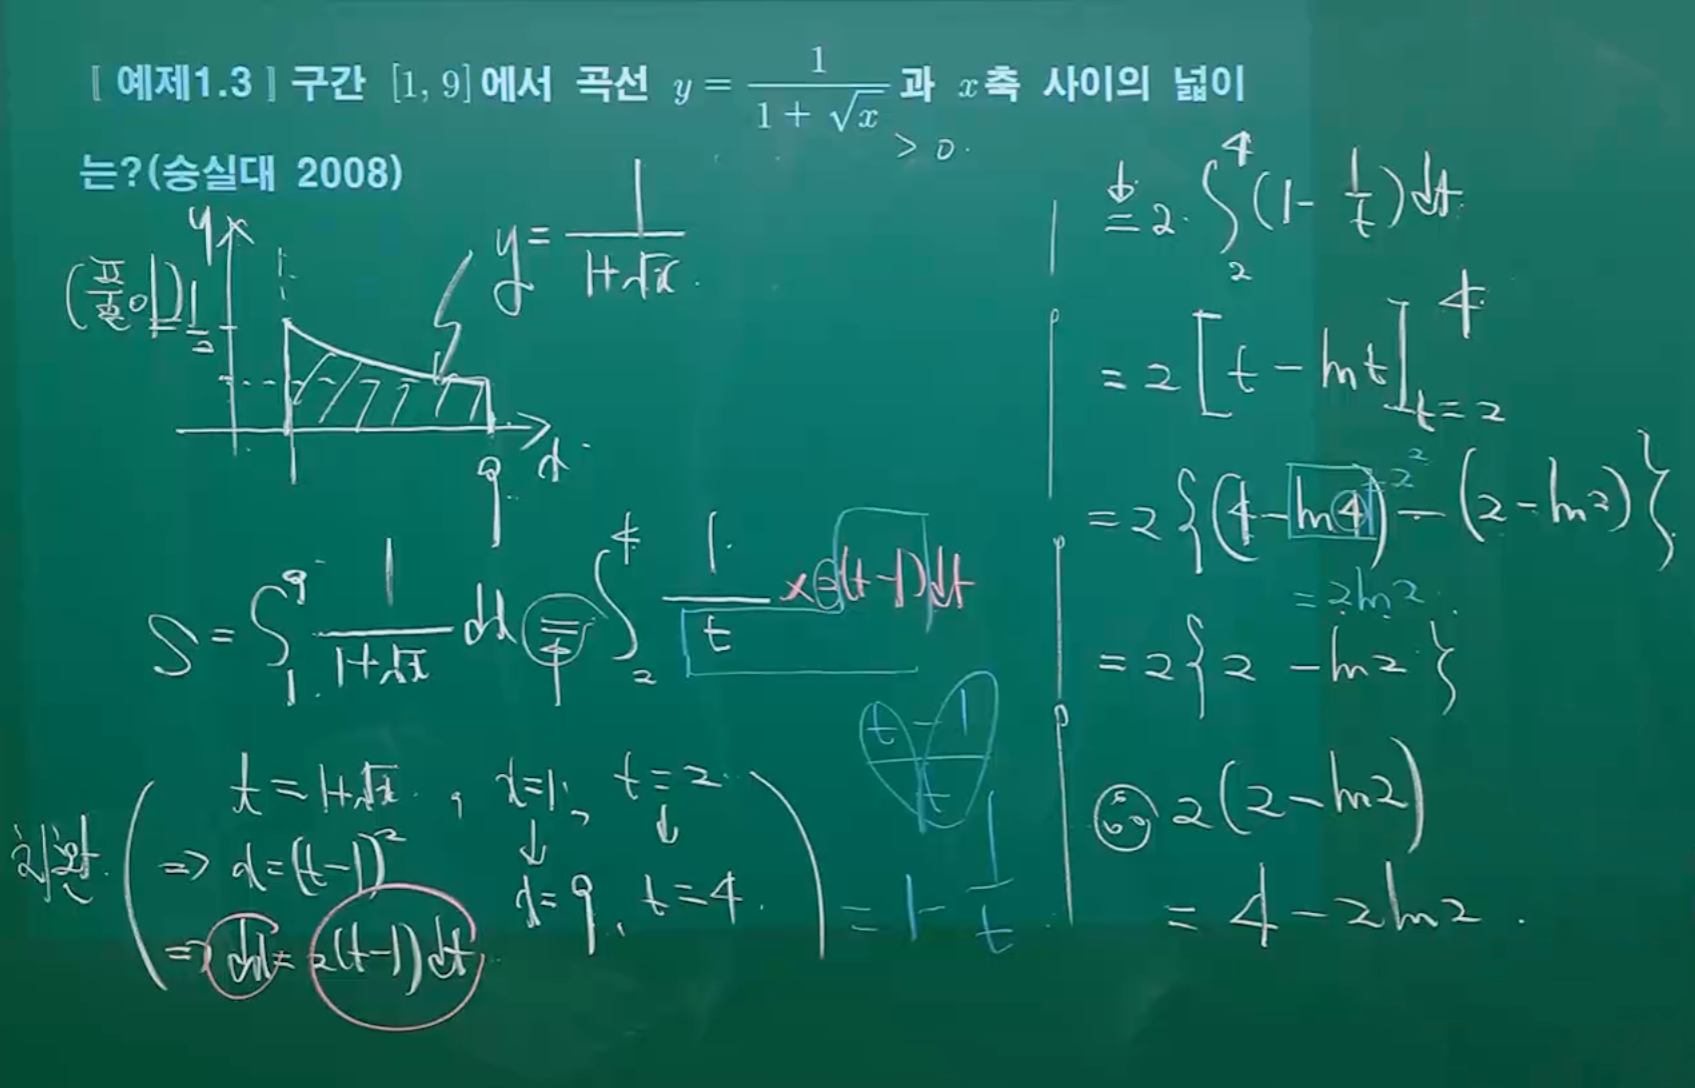 [ 예제1.3 ] 구간 [1, 9]에서 곡선 y = 1/(1+√x) 과 x축 사이의 넓이
는?(숭실대 2008)
> 0.
y
y = 1/(1+√x)
1/2
1
9
x
S = ∫₁⁹ 1/(1+√x) dx = ∫₂⁴ 1/t × 2(t-1)dt
t = 1+√x, x=1, t=2
=> x = (t-1)²
↓ ↓
x=9, t=4.
=> dx = 2(t-1)dt
(t-1)/t
= 1 - 1/t
= 2·∫₂⁴ (1 - 1/t) dt
= 2[t - ln t]⁴ t=2
= 2{(4 - ln4) - (2 - ln2)}
= 2²
= 2ln2
= 2{2 - ln2}
2(2 - ln2)
= 4 - 2ln2.